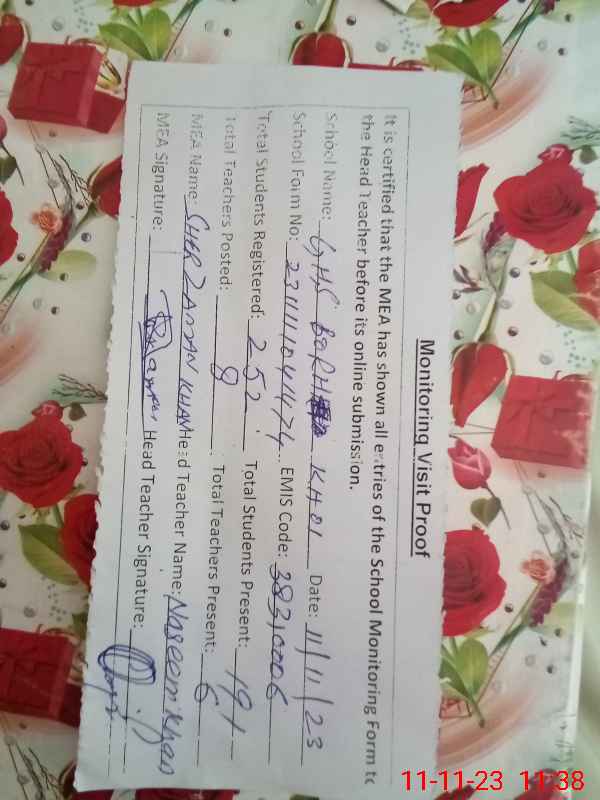 Monitoring Visit Proof
It is certified that the MEA has shown all entries of the School Monitoring Form to
the Head Teacher before its online submission.
School Name: GHS BORHI KHOI Date: 11/11/23
School Form No: EMIS Code:
Total Students Registered: 252 Total Students Present: 191
Total Teachers Posted: 8 Total Teachers Present: 6
MEA Name: SHER ZAMAN KHAN Head Teacher Name: Naseem Khan
MEA Signature: Head Teacher Signature:
11-11-23 11:38